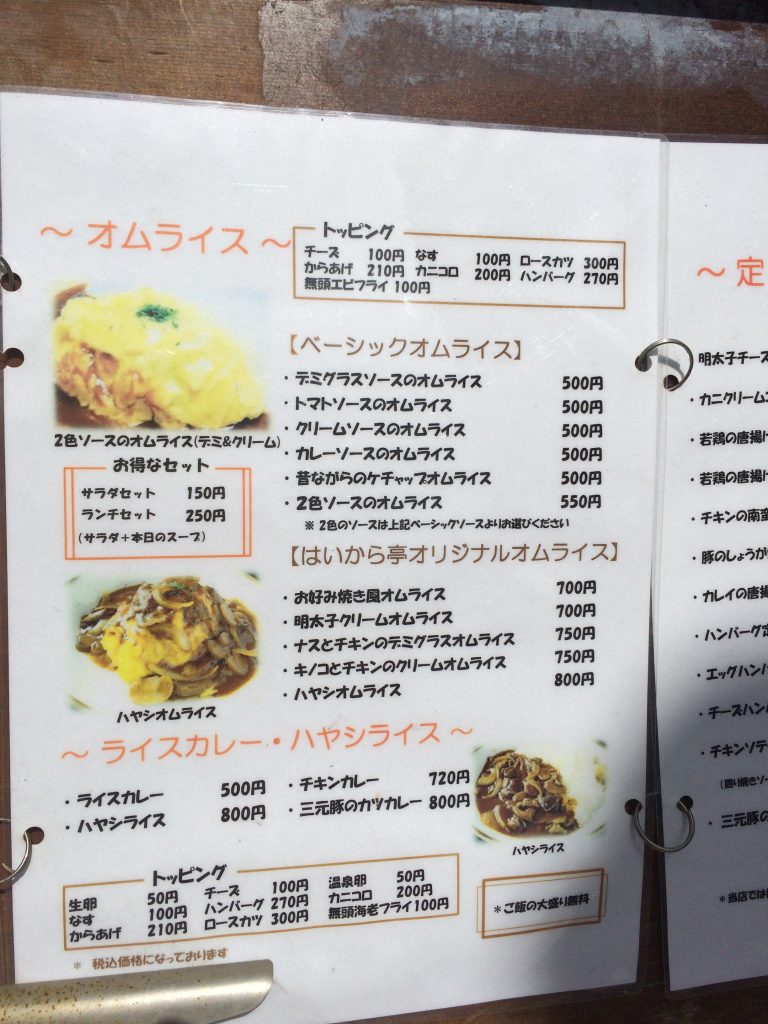 ～ オムライス ～
トッピング
チーズ 100円 なす 100円 ロースカツ 300円
からあげ 210円 カニコロ 200円 ハンバーグ 270円
無頭エビフライ 100円
2色ソースのオムライス(デミ&クリーム)
お得なセット
サラダセット 150円
ランチセット 250円
(サラダ+本日のスープ)
【ベーシックオムライス】
・デミグラスソースのオムライス 500円
・トマトソースのオムライス 500円
・クリームソースのオムライス 500円
・カレーソースのオムライス 500円
・昔ながらのケチャップオムライス 500円
・2色ソースのオムライス 550円
※ 2色のソースは上記ベーシックソースよりお選びください
【はいから亭オリジナルオムライス】
・お好み焼き風オムライス 700円
・明太子クリームオムライス 700円
・ナスとチキンのデミグラスオムライス 750円
・キノコとチキンのクリームオムライス 750円
・ハヤシオムライス 800円
ハヤシオムライス
～ ライスカレー・ハヤシライス ～
・ライスカレー 500円 ・チキンカレー 720円
・ハヤシライス 800円 ・三元豚のカツカレー 800円
ハヤシライス
トッピング
生卵 50円 チーズ 100円 温泉卵 50円
なす 100円 ハンバーグ 270円 カニコロ 200円
からあげ 210円 ロースカツ 300円 無頭海老フライ 100円
＊ご飯の大盛り無料
＊ 税込価格になっております
～ 定
明太子チーズ
・カニクリーム
・若鶏の唐揚げ
・若鶏の唐揚げ
・チキンの南蛮
・豚のしょうが
・カレイの唐揚
・ハンバーグ定
・エッグハンバ
・チーズハンバ
・チキンソテ
(照り焼きソー
・三元豚の
＊当店では